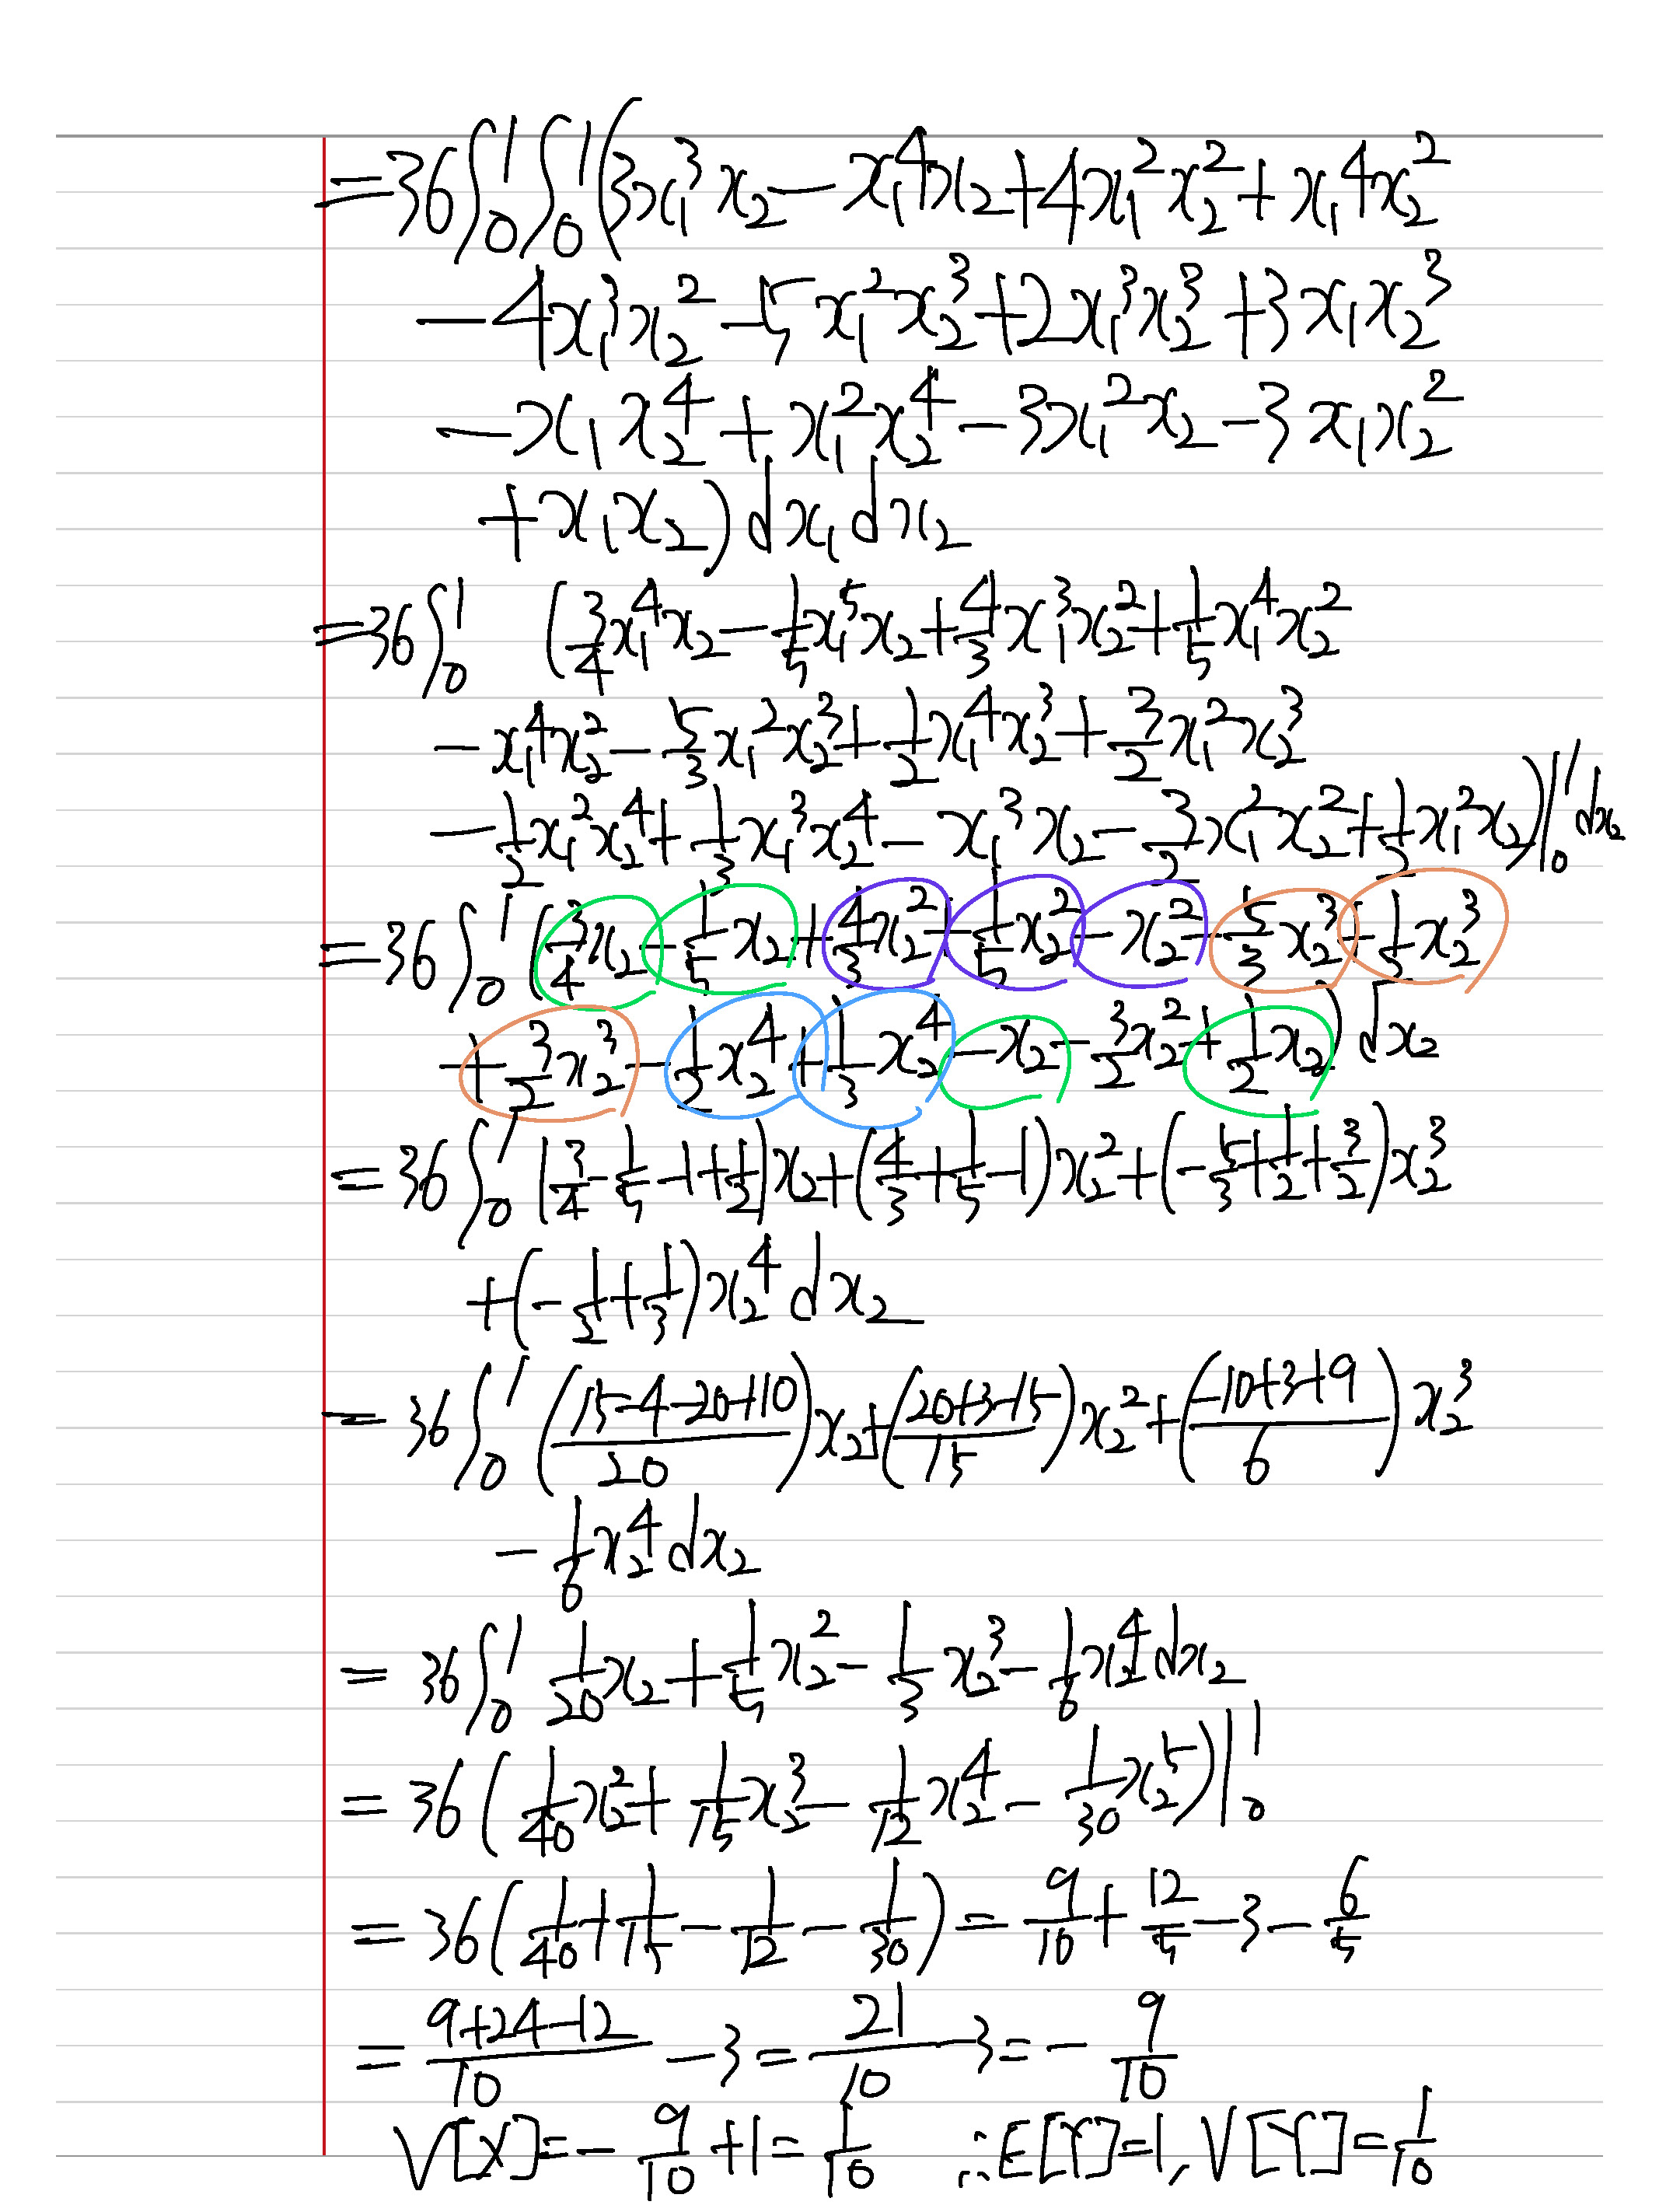 =36∫₀¹∫₀¹(3x₁³x₂−x₁⁴x₂+4x₁²x₂²+x₁⁴x₂²
−4x₁³x₂²−5x₁²x₂³+2x₁³x₂³+3x₁x₂³
−x₁x₂⁴+x₁²x₂⁴−3x₁²x₂−3x₁x₂²
+x₁x₂)dx₁dx₂
=36∫₀¹ (3/4x₁⁴x₂−1/5x₁⁵x₂+4/3x₁³x₂²+1/5x₁⁴x₂²
−x₁⁴x₂²−5/3x₁²x₂³+1/2x₁⁴x₂³+3/2x₁²x₂³
−1/2x₁²x₂⁴+1/3x₁³x₂⁴−x₁³x₂−3/2x₁²x₂²+1/2x₁²x₂)|₀¹dx₂
=36∫₀¹(3/4x₂−1/5x₂+4/3x₂²+1/5x₂²−x₂²−5/3x₂³+1/2x₂³
+3/2x₂³−1/2x₂⁴+1/3x₂⁴−x₂−3/2x₂²+1/2x₂)dx₂
=36∫₀¹(3/4−1/5−1+1/2)x₂+(4/3+1/5−1)x₂²+(−5/3+1/2+3/2)x₂³
+(−1/2+1/3)x₂⁴dx₂
=36∫₀¹((15−4−20+10)/20)x₂+((20+3−15)/15)x₂²+((−10+3+9)/6)x₂³
−1/6x₂⁴dx₂
=36∫₀¹ 1/20x₂+1/5x₂²−1/3x₂³−1/6x₂⁴dx₂
=36(1/40x₂²+1/15x₂³−1/12x₂⁴−1/30x₂⁵)|₀¹
=36(1/40+1/15−1/12−1/30)=9/10+12/5−3−6/5
=(9+24−12)/10−3=21/10−3=−9/10
V[X]=−9/10+1=1/10 ∴E[Y]=1, V[Y]=1/10